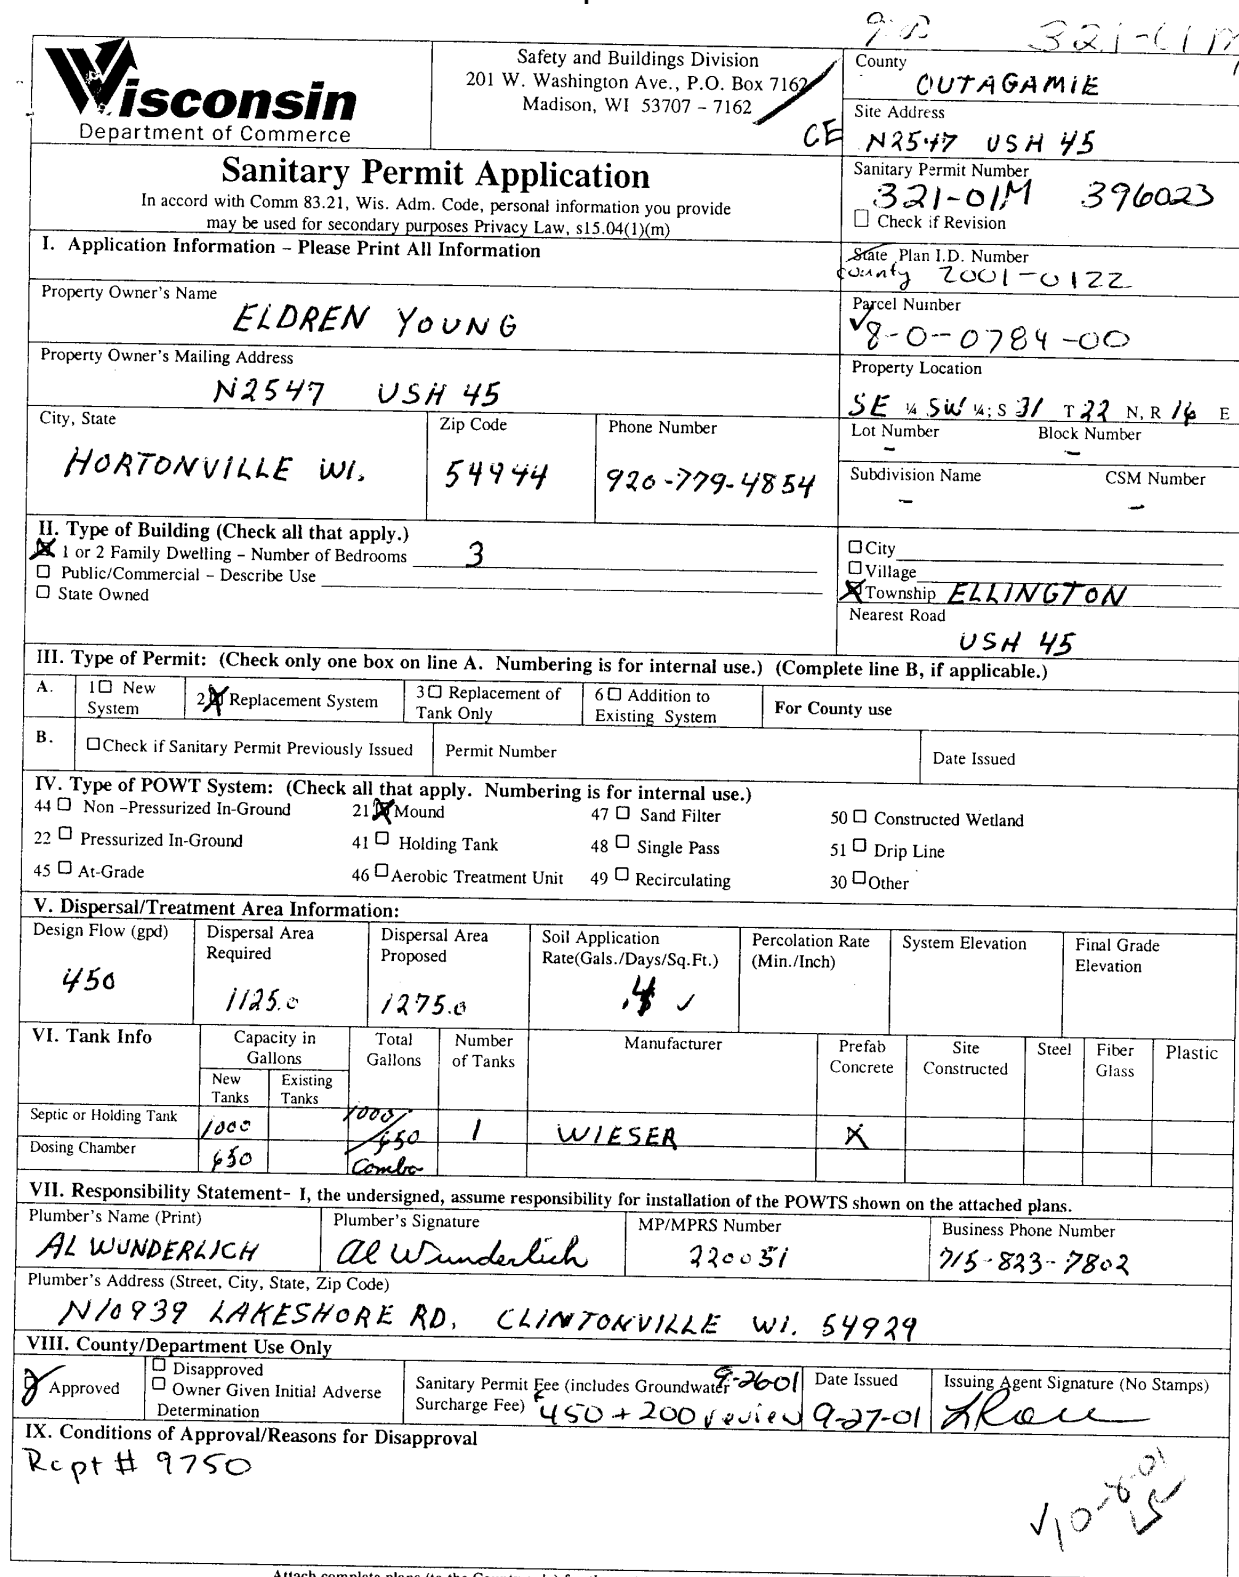 321-01M
Wisconsin
Department of Commerce
Safety and Buildings Division
201 W. Washington Ave., P.O. Box 7162
Madison, WI 53707 – 7162
CE
County
OUTAGAMIE
Site Address
N2547 USH 45
Sanitary Permit Application
In accord with Comm 83.21, Wis. Adm. Code, personal information you provide
may be used for secondary purposes Privacy Law, s15.04(1)(m)
Sanitary Permit Number
321-01M 396023
☐ Check if Revision
I. Application Information – Please Print All Information
State Plan I.D. Number
County 2001-0122
Property Owner's Name
ELDREN YOUNG
Parcel Number
✓8-0-0784-00
Property Owner's Mailing Address
N2547 USH 45
Property Location
SE ¼ SW ¼; S 31 T 22 N, R 16 E
City, State
HORTONVILLE WI.
Zip Code
54944
Phone Number
920-779-4854
Lot Number Block Number
- -
Subdivision Name CSM Number
- -
II. Type of Building (Check all that apply.)
☒ 1 or 2 Family Dwelling – Number of Bedrooms 3
☐ Public/Commercial – Describe Use
☐ State Owned
☐ City
☐ Village
☒ Township ELLINGTON
Nearest Road
USH 45
III. Type of Permit: (Check only one box on line A. Numbering is for internal use.) (Complete line B, if applicable.)
A. 1 ☐ New System 2 ☒ Replacement System 3 ☐ Replacement of Tank Only 6 ☐ Addition to Existing System For County use
B. ☐ Check if Sanitary Permit Previously Issued Permit Number Date Issued
IV. Type of POWT System: (Check all that apply. Numbering is for internal use.)
44 ☐ Non –Pressurized In-Ground 21 ☒ Mound 47 ☐ Sand Filter 50 ☐ Constructed Wetland
22 ☐ Pressurized In-Ground 41 ☐ Holding Tank 48 ☐ Single Pass 51 ☐ Drip Line
45 ☐ At-Grade 46 ☐ Aerobic Treatment Unit 49 ☐ Recirculating 30 ☐ Other
V. Dispersal/Treatment Area Information:
Design Flow (gpd)
450
Dispersal Area Required
1125.0
Dispersal Area Proposed
1275.0
Soil Application Rate(Gals./Days/Sq.Ft.)
.4 ✓
Percolation Rate (Min./Inch)
System Elevation
Final Grade Elevation
VI. Tank Info
Capacity in Gallons
New Tanks Existing Tanks
Total Gallons
Number of Tanks
Manufacturer
Prefab Concrete
Site Constructed
Steel
Fiber Glass
Plastic
Septic or Holding Tank 1000 1000/650 1 WIESER X
Dosing Chamber 650 Combo
VII. Responsibility Statement- I, the undersigned, assume responsibility for installation of the POWTS shown on the attached plans.
Plumber's Name (Print)
AL WUNDERLICH
Plumber's Signature
Al Wunderlich
MP/MPRS Number
220051
Business Phone Number
715-823-7802
Plumber's Address (Street, City, State, Zip Code)
N10939 LAKESHORE RD. CLINTONVILLE WI. 54929
VIII. County/Department Use Only
Approved
☐ Disapproved
☐ Owner Given Initial Adverse Determination
Sanitary Permit Fee (includes Groundwater Surcharge Fee) 9-26-01
450 + 200 review
Date Issued
9-27-01
Issuing Agent Signature (No Stamps)
IX. Conditions of Approval/Reasons for Disapproval
Rcpt # 9750
✓10-8-01